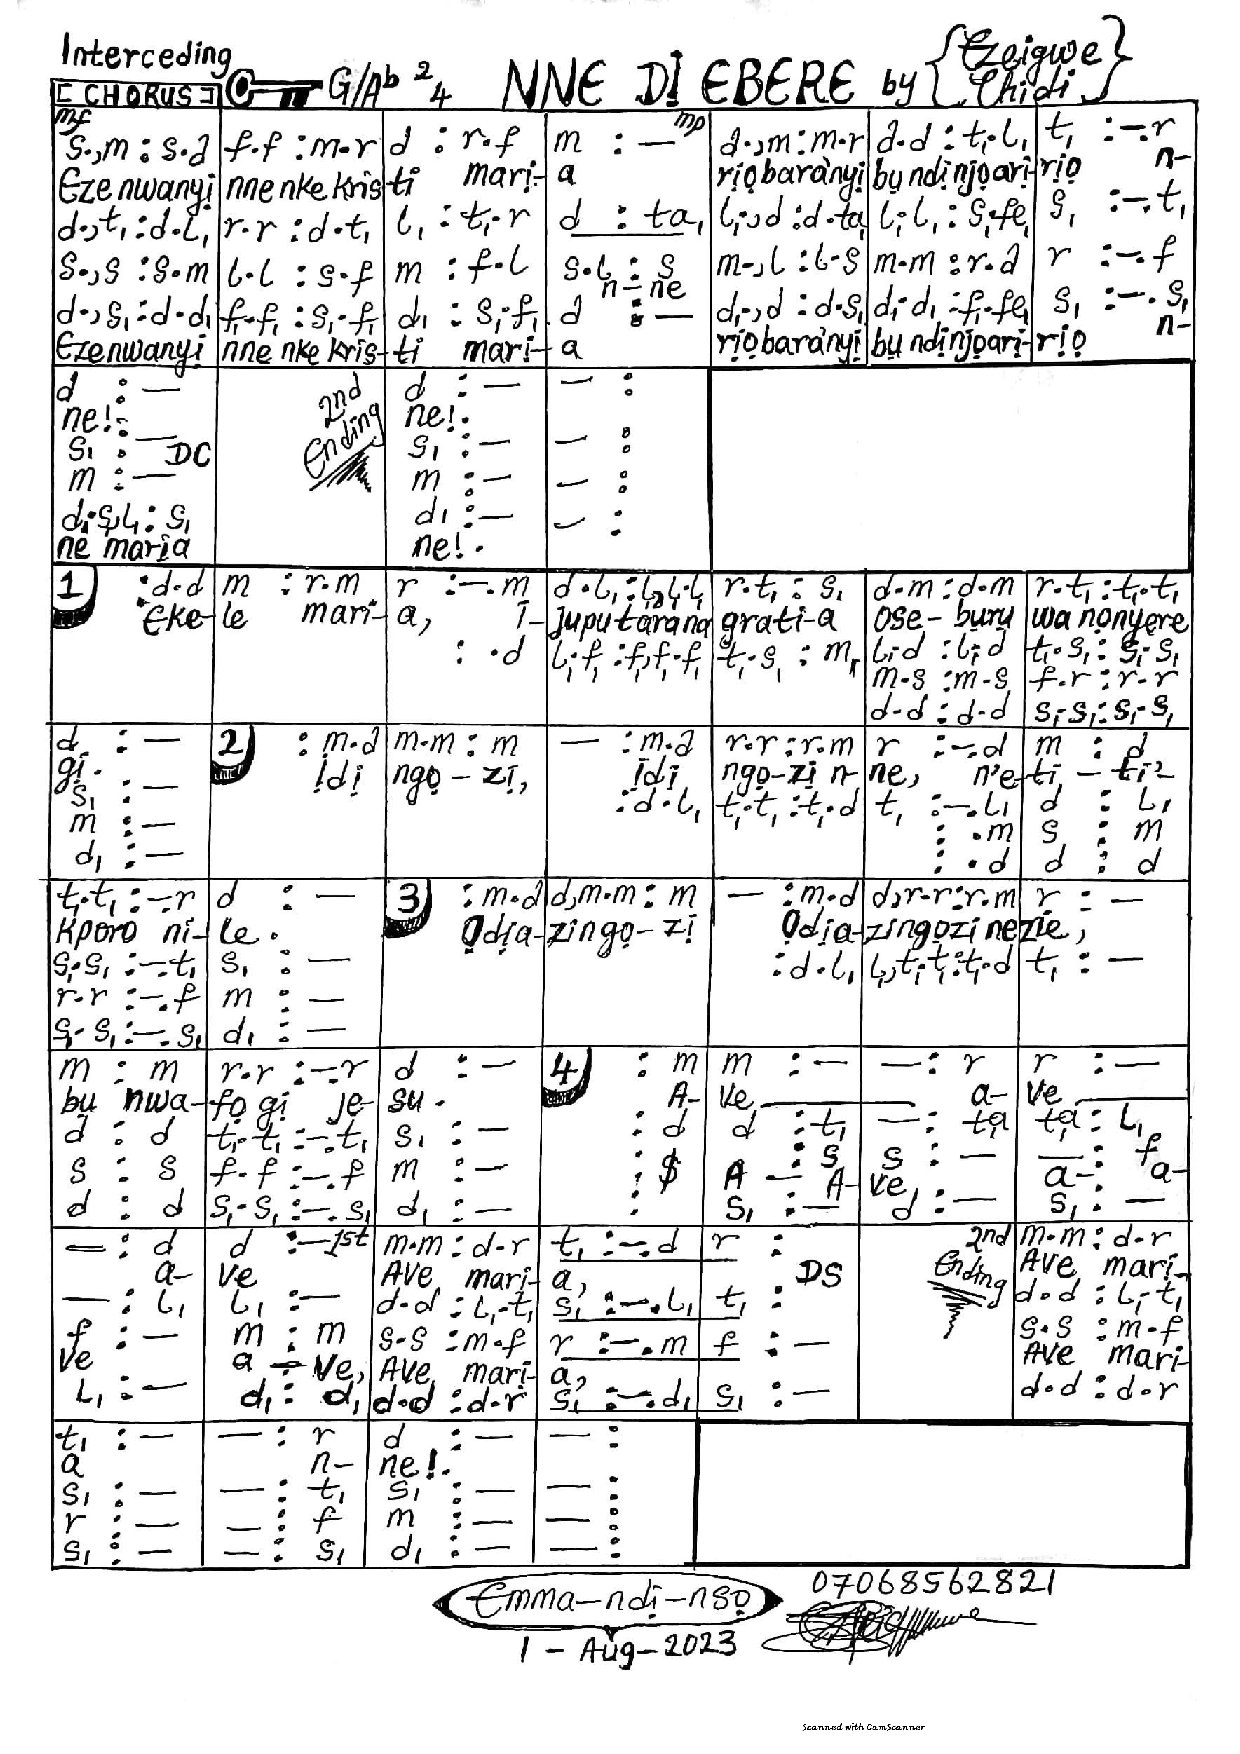 Interceding
[CHORUS] G/Ab 2/4 NNE DỊ EBERE by {Ezeigwe Chidi}
mf mp
s.,m : s.d | f.f : m.r | d : r.f | m : — | d.,m : m.r | d.d : t₁.l₁ | t₁ : —.r
Ezenwanyi nne nke kristi mari-a rịọbarànyị bụ ndịnjọarị-rịọ n-
d.,t₁ : d.l₁ | r.r : d.t₁ | l₁ : t₁.r | d : ta₁ | l₁.,d : d.ta₁ | l₁.l₁ : s₁.fe₁ | s₁ : —.t₁
s.,s : s.m | l.l : s.f | m : f.l | s.l : s | m.,l : l.s | m.m : r.d | r : —.f
n-ne
d.,s₁ : d.d₁ | f₁.f₁ : s₁.f₁ | d₁ : s₁.f₁ | d : — | d₁.,d : d.s₁ | d₁.d₁ : f₁.fe₁ | s₁ : —.s₁
Ezenwanyi nne nke kris-ti mari-a rịọbarànyị bụ ndịnjọarị-rịọ n-
d : — | 2nd Ending | d : — | — :
ne!. ne!.
s₁ : — DC | s₁ : — | — :
m : — | m : — | — :
d₁.s₁,l₁ : s₁ | d₁ : — | — :
ne marịa ne!.
1 : .d.d | m : r.m | r : —.m | d.l₁ : l₁,l₁.l₁ | r.t₁ : s₁ | d.m : d.m | r.t₁ : t₁.t₁
Eke-le mari-a, I-juputarana grati-a Ose-buru wa nọnyere
: .d | l₁.f₁ : f₁,f₁.f₁ | t₁.s₁ : m₁ | l₁.d : l₁.d | t₁.s₁ : s₁.s₁
m.s : m.s | f.r : r.r
d.d : d.d | s₁.s₁ : s₁.s₁
d : — | 2 : m.d | m.m : m | — : m.d | r.r : r.m | r : —.d | m : d
gị. Ịdị ngọ-zị, ịdị ngọ-zị n-ne, n'etị-tị-
s₁ : — | : d.l₁ | t₁.t₁ : t₁.d | t₁ : —.l₁ | d : l₁
m : — | : .m | s : m
d₁ : — | : .d | d : d
t₁.t₁ : —.r | d : — | 3 : m.d | d,m.m : m | — : m.d | d,r.r : r.m | r : —
Kporo ni-le. Ọdịa-zịngọ-zị Ọdịa-zịngọzị nezie,
s₁.s₁ : —.t₁ | s₁ : — | : d.l₁ | l₁,t₁.t₁ : t₁.d | t₁ : —
r.r : —.f | m : —
s₁.s₁ : —.s₁ | d₁ : —
m : m | r.r : —.r | d : — | 4 : m | m : — | — : r | r : —
bụ nwa-fọ gị je-su. A-ve a-ve
d : d | t₁.t₁ : —.t₁ | s₁ : — | : d | d : t₁ | — : ta₁ | ta₁ : l₁
s : s | f.f : —.f | m : — | : s | : s | s : — | — : f
A — A-ve, a- fa-
d : d | s₁.s₁ : —.s₁ | d₁ : — | s₁ : — | d : — | s₁ : —
— : d | d : — 1st | m.m : d.r | t₁ : —.d | r : | 2nd Ending | m.m : d.r
a-ve Ave mari-a, DS Ave mari-
— : l₁ | l₁ : — | d.d : l₁.t₁ | s₁ : —.l₁ | t₁ : | d.d : l₁.t₁
f : — | m : m | s.s : m.f | r : —.m | f : — | s.s : m.f
ve a — ve, Ave mari-a, Ave mari-
l₁ : — | d₁ : d₁ | d.d : d.r | s₁ : —.d₁ | s₁ : — | d.d : d.r
t₁ : — | — : r | d : — | — :
a n-ne!.
s₁ : — | — : t₁ | s₁ : — | — :
r : — | — : f | m : — | — :
s₁ : — | — : s₁ | d₁ : — | — :
Emma-ndị-nsọ 07068562821
1 - Aug-2023
Scanned with CamScanner